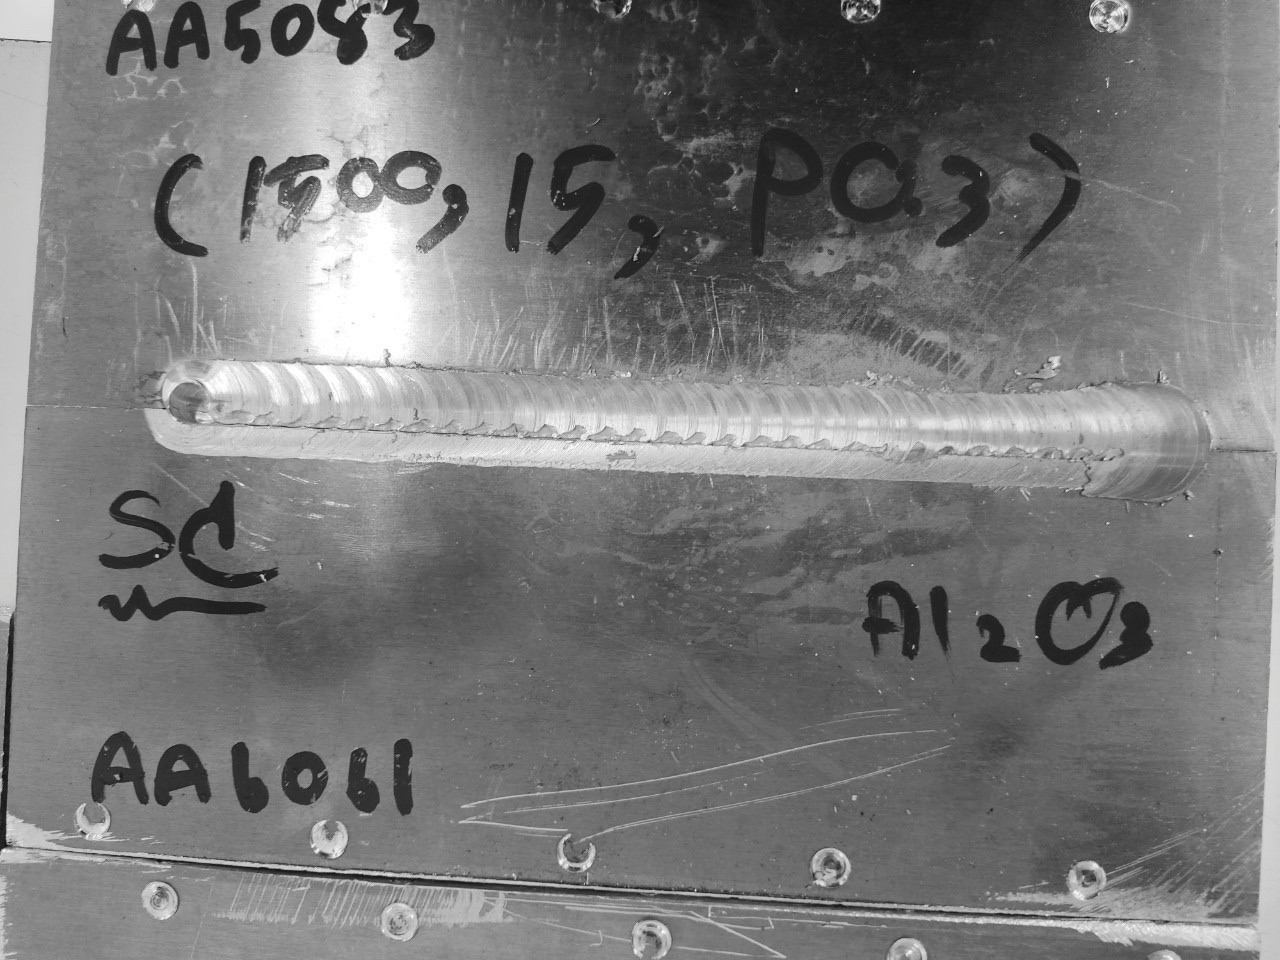 AA5083
(1500, 15, P0.3)
SC
Al2O3
AA6061